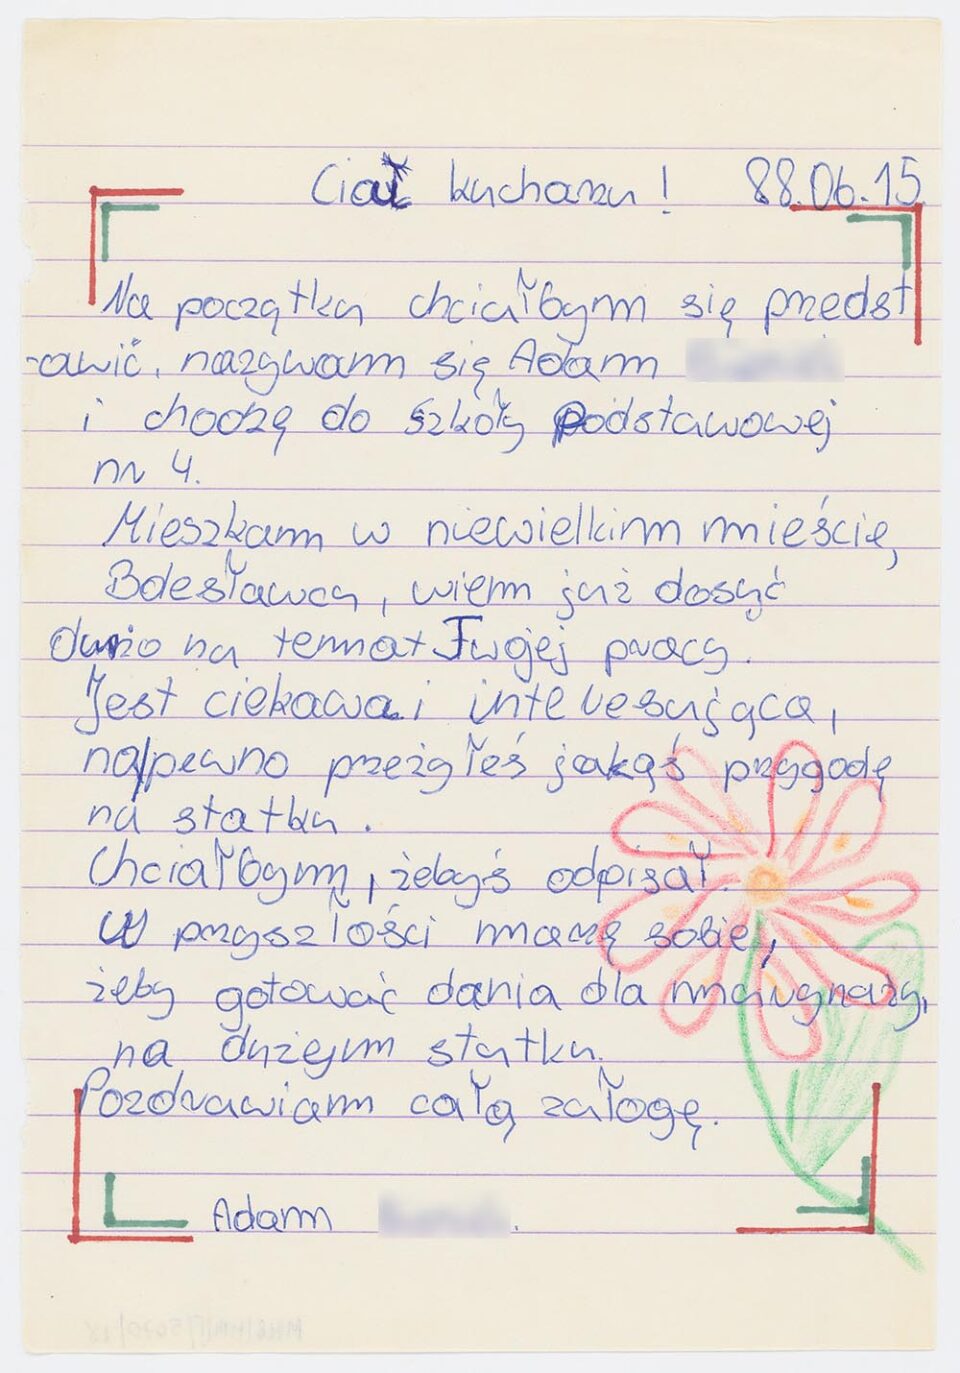 Ciał kucharzu! 88.06.15
Na początku chciałbym się przedst
-awić, nazywam się Adam
i chodzę do szkoły Podstawowej
nr 4.
Mieszkam w niewielkim mieście,
Bolesławcu, wiem już dosyć
dużo na temat Twojej pracy.
Jest ciekawa i interesująca,
na/pewno przeżyłeś jakąś przygodę
na statku.
Chciałbym, żebyś odpisał.
W przyszłości marzę sobie,
żeby gotować dania dla marynarzy,
na dużym statku.
Pozdrawiam całą załogę.
Adam